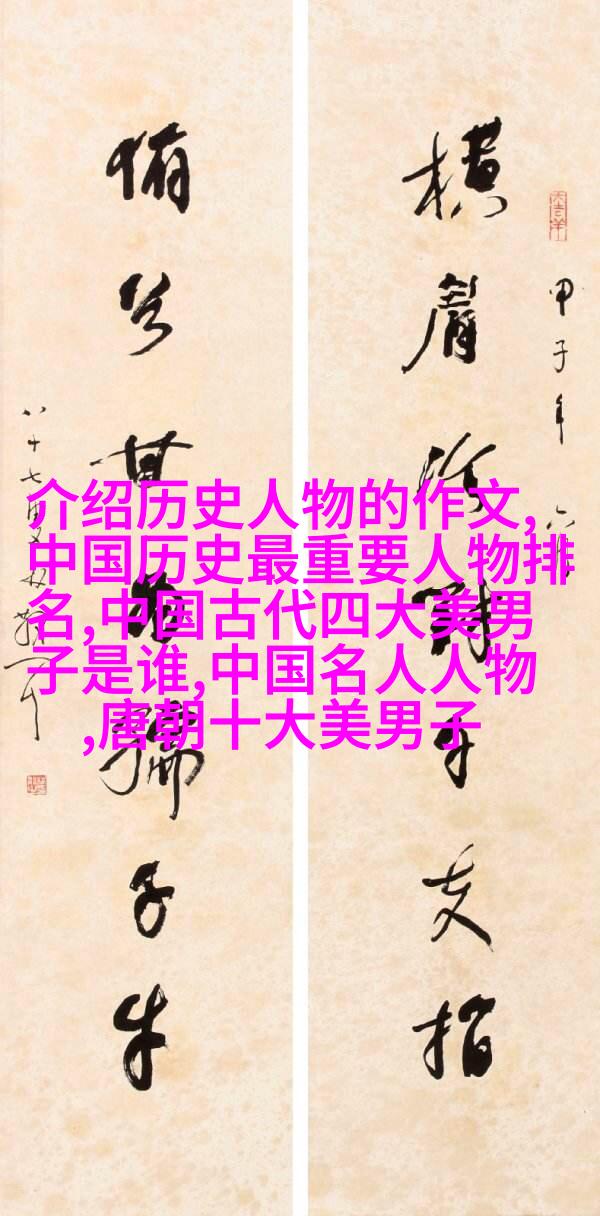 介绍历史人物的作文,
中国历史最重要人物排
名,中国古代四大美男
子是谁,中国名人人物
,唐朝十大美男子
甲子年六
横眉冷对千夫指
俯首甘为孺子牛
八十七